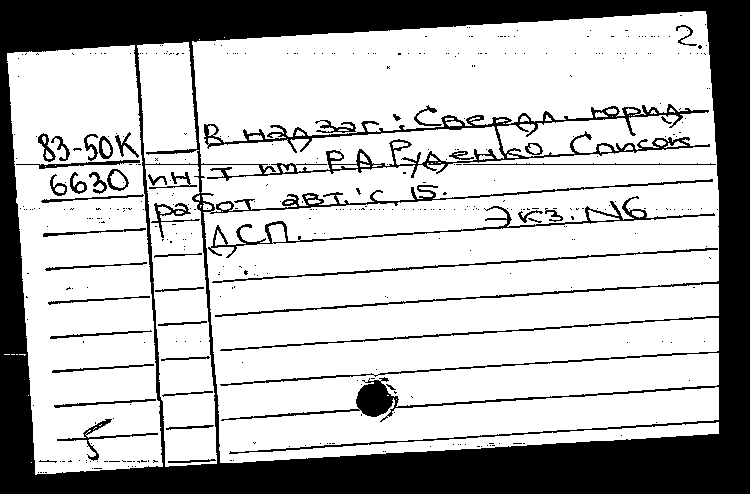 2.
83-50К В надзаг.: Свердл. юрид.
6630 ин-т им. Р.А. Руденко. Список
работ авт.: с. 15.
ДСП. Экз. N6
5